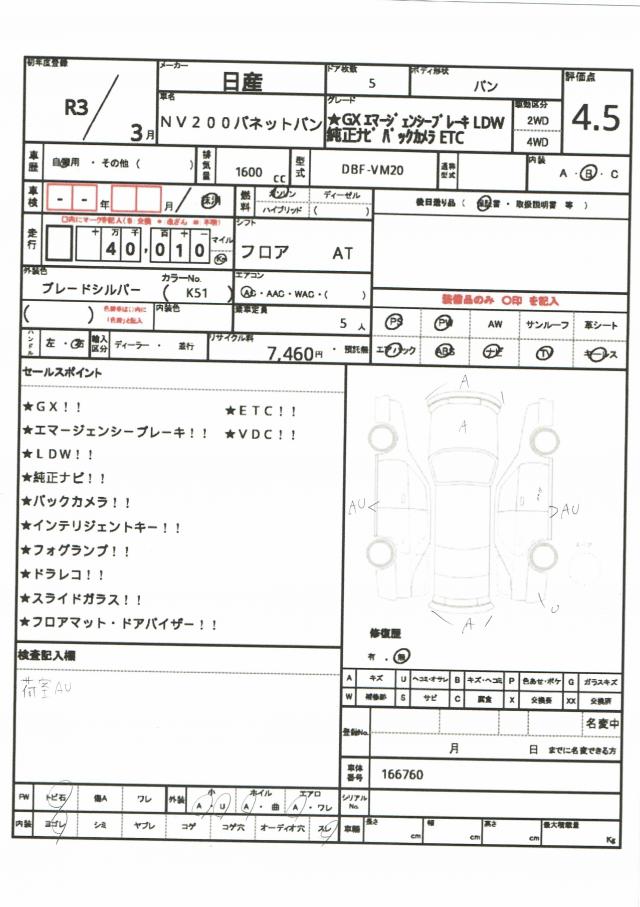 初年度登録
R3
3月
メーカー
日産
ドア枚数
5
ボディ形状
バン
評価点
4.5
車名
NV200バネットバン
グレード
★GX エマージェンシーブレーキ LDW
純正ナビ バックカメラ ETC
駆動区分
2WD
4WD
車歴
自家用・その他（　　）
排気量
1600 CC
型式
DBF-VM20
通称型式
内装
A・B・C
車検
年
月
抹消
燃料
ガソリン
ディーゼル
ハイブリッド
（　　）
後日送り品（保証書・取扱説明書 等）
走行
十 万 千 百 十 一
40,010
マイル
Km
シフト
フロア AT
外装色
ブレードシルバー
カラーNo.
（K51）
エアコン
AC・AAC・WAC・（　）
装備品のみ 〇印 を記入
（　　）
内装色
乗車定員
5 人
PS
PW
AW
サンルーフ
革シート
ハンドル
左・右
輸入区分
ディーラー・並行
リサイクル料
7,460円・預託無
エアバック
ABS
ナビ
TV
キーレス
セールスポイント
★GX！！
★ETC！！
★エマージェンシーブレーキ！！
★VDC！！
★LDW！！
★純正ナビ！！
★バックカメラ！！
★インテリジェントキー！！
★フォグランプ！！
★ドラレコ！！
★スライドガラス！！
★フロアマット・ドアバイザー！！
A
A
AU
AU
U
A
修復歴
有・無
検査記入欄
荷室AU
A キズ U ヘコミ・オサレ B キズ・ヘコミ P 色あせ・ボケ G ガラスキズ
W 補修跡 S サビ C 腐食 X 交換要 XX 交換済
登録No.
名変中
月 日 までに名変できる方
車体番号
166760
シリアルNo.
FW
トビ石
傷A
ワレ
外装
小
A U
ホイル
A・曲
エアロ
A・ワレ
内装
ヨゴレ
シミ
ヤブレ
コゲ
コゲ穴
オーディオ穴
スレ
車輌
長さ cm
幅 cm
高さ cm
最大積載量 Kg